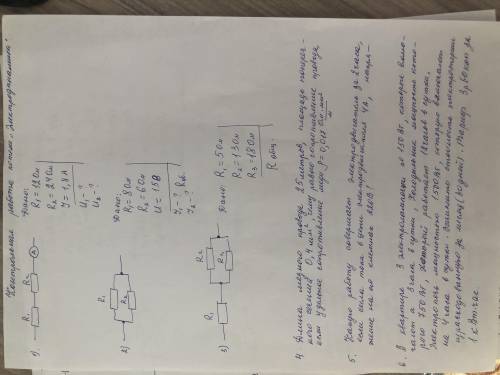 Контрольная работа по теме "Электродинамика".
1) R₁ R₂ A
Дано:
R₁ = 12 Ом
R₂ = 24 Ом
I = 1,8 А
U₁ - ?
U₂ - ?
2) R₁
R₂
Дано:
R₁ = 8 Ом
R₂ = 6 Ом
U = 15 В
I₁ - ?
I₂ - ?
3) R₁ R₂
R₃
Дано: R₁ = 5 Ом
R₂ = 13 Ом
R₃ = 18 Ом
R общ.
4. Длина медного провода 25 метров, площадь попереч-
ного сечения 0,4 мм², чему равно сопротивление провода,
если удельное сопротивление меди ρ = 0,018 Ом·мм²/м
5. Какую работу совершает электродвигатель за 2 часа,
если сила тока в цепи электродвигателя 4А, напря-
жение на его клеммах 220В?
6. В квартире 3 электролампочки по 150 Вт, которые вклю-
чают на 3 часа в сутки, Холодильник мощностью кото-
рого 750 Вт, который работает 12 часов в сутки,
Электропечь мощностью 1500 Вт, которую включают
на 4 часа в сутки. стоимость электроэнергии
израсходованную за месяц (30 дней). Тариф: за
1 кВт·час